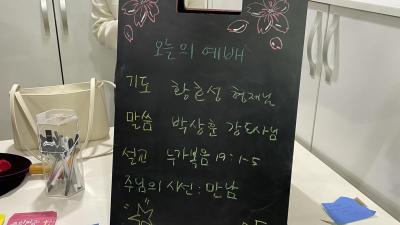 오늘의 예배
기도 황훈성 형제님
말씀 박상훈 강도사님
설교 누가복음 19:1-5
주님의 시선: 만남